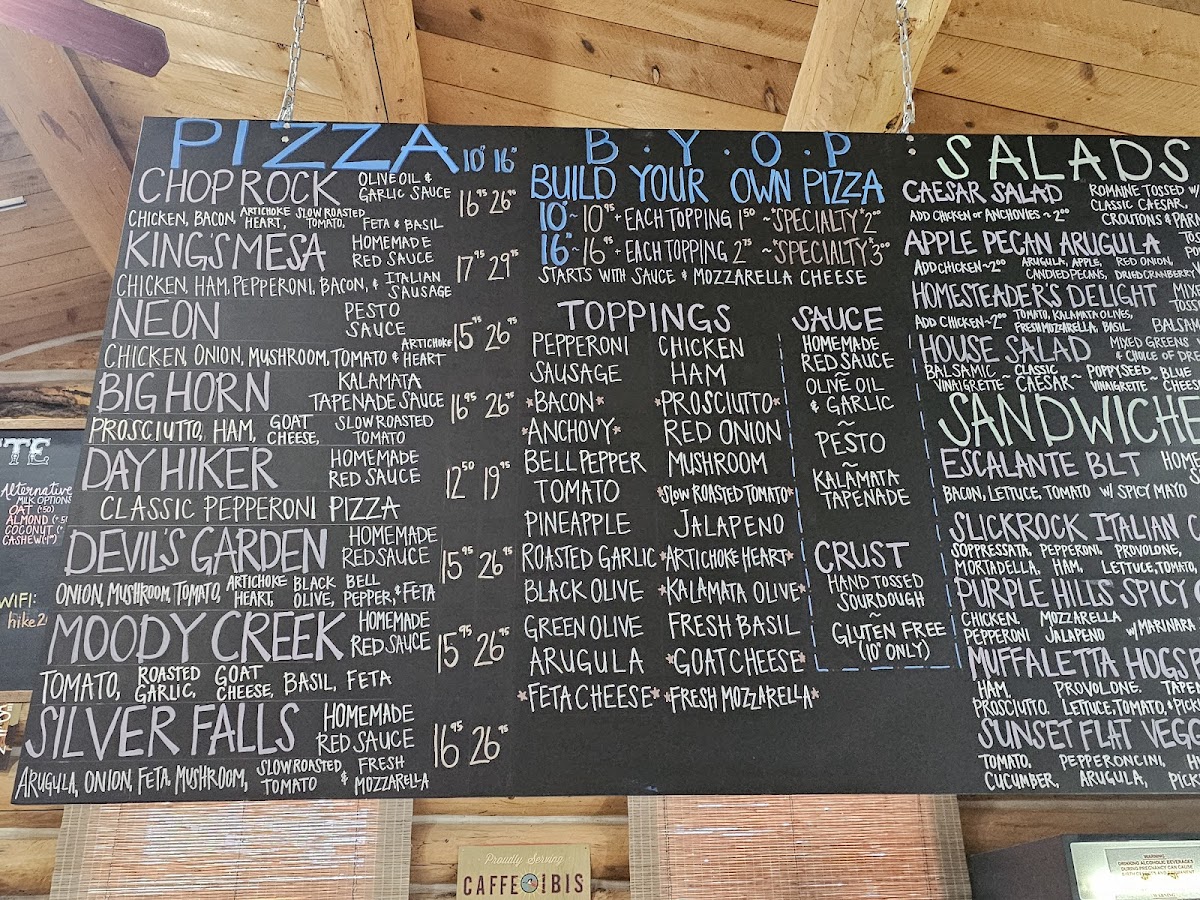 PIZZA 10" 16"
CHOP ROCK OLIVE OIL & GARLIC SAUCE 16.95 26.95
CHICKEN, BACON, ARTICHOKE HEART, SLOW ROASTED TOMATO, FETA & BASIL
KING'S MESA HOMEMADE RED SAUCE 17.95 29.95
CHICKEN, HAM, PEPPERONI, BACON, & ITALIAN SAUSAGE
NEON PESTO SAUCE 15.95 26.95
CHICKEN, ONION, MUSHROOM, TOMATO & ARTICHOKE HEART
BIG HORN KALAMATA TAPENADE SAUCE 16.95 26.95
PROSCIUTTO, HAM, GOAT CHEESE, SLOW ROASTED TOMATO
DAY HIKER HOMEMADE RED SAUCE 12.50 19.95
CLASSIC PEPPERONI PIZZA
DEVIL'S GARDEN HOMEMADE RED SAUCE 15.95 26.95
ONION, MUSHROOM, TOMATO, ARTICHOKE HEART, BLACK OLIVE, BELL PEPPER, & FETA
MOODY CREEK HOMEMADE RED SAUCE 15.95 26.95
TOMATO, ROASTED GARLIC, GOAT CHEESE, BASIL, FETA
SILVER FALLS HOMEMADE RED SAUCE 16.95 26.95
ARUGULA, ONION, FETA, MUSHROOM, SLOW ROASTED TOMATO & FRESH MOZZARELLA
B.Y.O.P
BUILD YOUR OWN PIZZA
10" ~ 10.95 + EACH TOPPING 1.50 ~ *SPECIALTY* 2.00
16" ~ 16.95 + EACH TOPPING 2.75 ~ *SPECIALTY* 3.00
STARTS WITH SAUCE & MOZZARELLA CHEESE
TOPPINGS
PEPPERONI
SAUSAGE
*BACON*
*ANCHOVY*
BELL PEPPER
TOMATO
PINEAPPLE
ROASTED GARLIC
BLACK OLIVE
GREEN OLIVE
ARUGULA
*FETA CHEESE*
CHICKEN
HAM
*PROSCIUTTO*
RED ONION
MUSHROOM
*SLOW ROASTED TOMATO*
JALAPENO
*ARTICHOKE HEART*
*KALAMATA OLIVE*
FRESH BASIL
*GOAT CHEESE*
*FRESH MOZZARELLA*
SAUCE
HOMEMADE
RED SAUCE
~
OLIVE OIL
& GARLIC
~
PESTO
~
KALAMATA
TAPENADE
CRUST
HAND TOSSED
SOURDOUGH
~
GLUTEN FREE
(10" ONLY)
SALADS
CAESAR SALAD ROMAINE TOSSED
ADD CHICKEN OR ANCHOVIES ~ 2.00 CLASSIC CAESAR,
CROUTONS &
APPLE PECAN ARUGULA
ADD CHICKEN ~ 2.00 ARUGULA, APPLE, RED ONION,
CANDIED PECANS, DRIED CRANBERRY
HOMESTEADER'S DELIGHT
ADD CHICKEN ~ 2.00 TOMATO, KALAMATA OLIVES,
FRESH MOZZARELLA, BASIL
HOUSE SALAD MIXED GREENS
& CHOICE OF
BALSAMIC VINAIGRETTE ~ CLASSIC CAESAR ~ POPPYSEED VINAIGRETTE ~ BLUE
SANDWICHE
ESCALANTE BLT
BACON, LETTUCE, TOMATO W/ SPICY MAYO
SLICKROCK ITALIAN
SOPPRESSATA, PEPPERONI, PROVOLONE,
MORTADELLA, HAM, LETTUCE, TOMATO,
PURPLE HILLS SPICY
CHICKEN, MOZZARELLA
PEPPERONI JALAPENO W/ MARINARA
MUFFALETTA
HAM, PROVOLONE,
PROSCIUTTO, LETTUCE, TOMATO,
SUNSET FLAT
TOMATO, PEPPERONCINI,
CUCUMBER, ARUGULA,
Alternative
MILK OPTIONS
OAT
ALMOND
COCONUT
CASHEW
WIFI:
Proudly Serving
CAFFE IBIS
WARNING